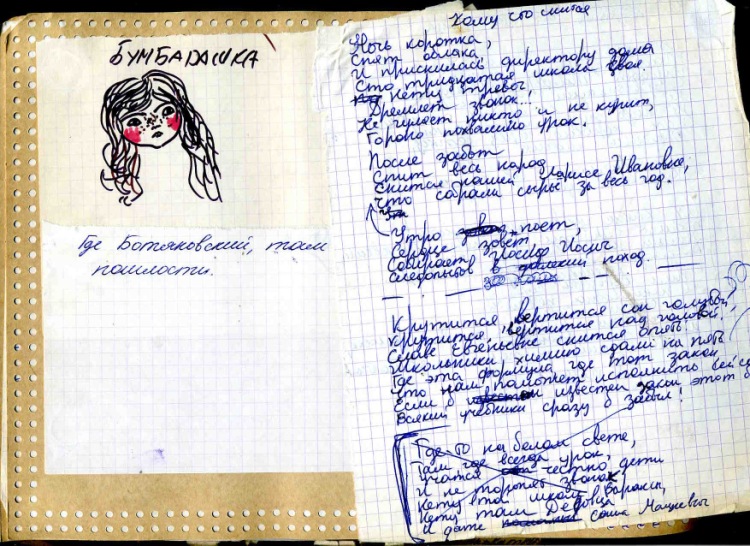 БУМБАРАШКА
Где Ботяковский, там
пошлости.
Кому что снится
Ночь коротка,
Спят облака
И приснилась директору дома
Сто тридцатая школа своя.
Нету тревог
Дремлет звонок...
Не гуляет никто и не курит,
Гороно похвалило урок.
После забот
Спит весь народ
Снится нашей Ларисе Ивановне,
Что собрали сырьё за весь год.
Утро поёт,
Сердце зовёт
Собирает Иосиф Иосич
Следопытов в поход.
Крутится, вертится сон голубой,
Крутится, вертится над головой.
Славе Евгеньевне снится опять:
Школьники химию сдали на пять
Где эта формула где тот закон
Что нам поможет исполнить
Если б известен закон этот б
Всякий учебники сразу б забыл!
Где-то на белом свете,
Там где всегда урок,
Учатся честно дети
И не торопят звонок
Нету в той школе
Нету там
И даже Саша